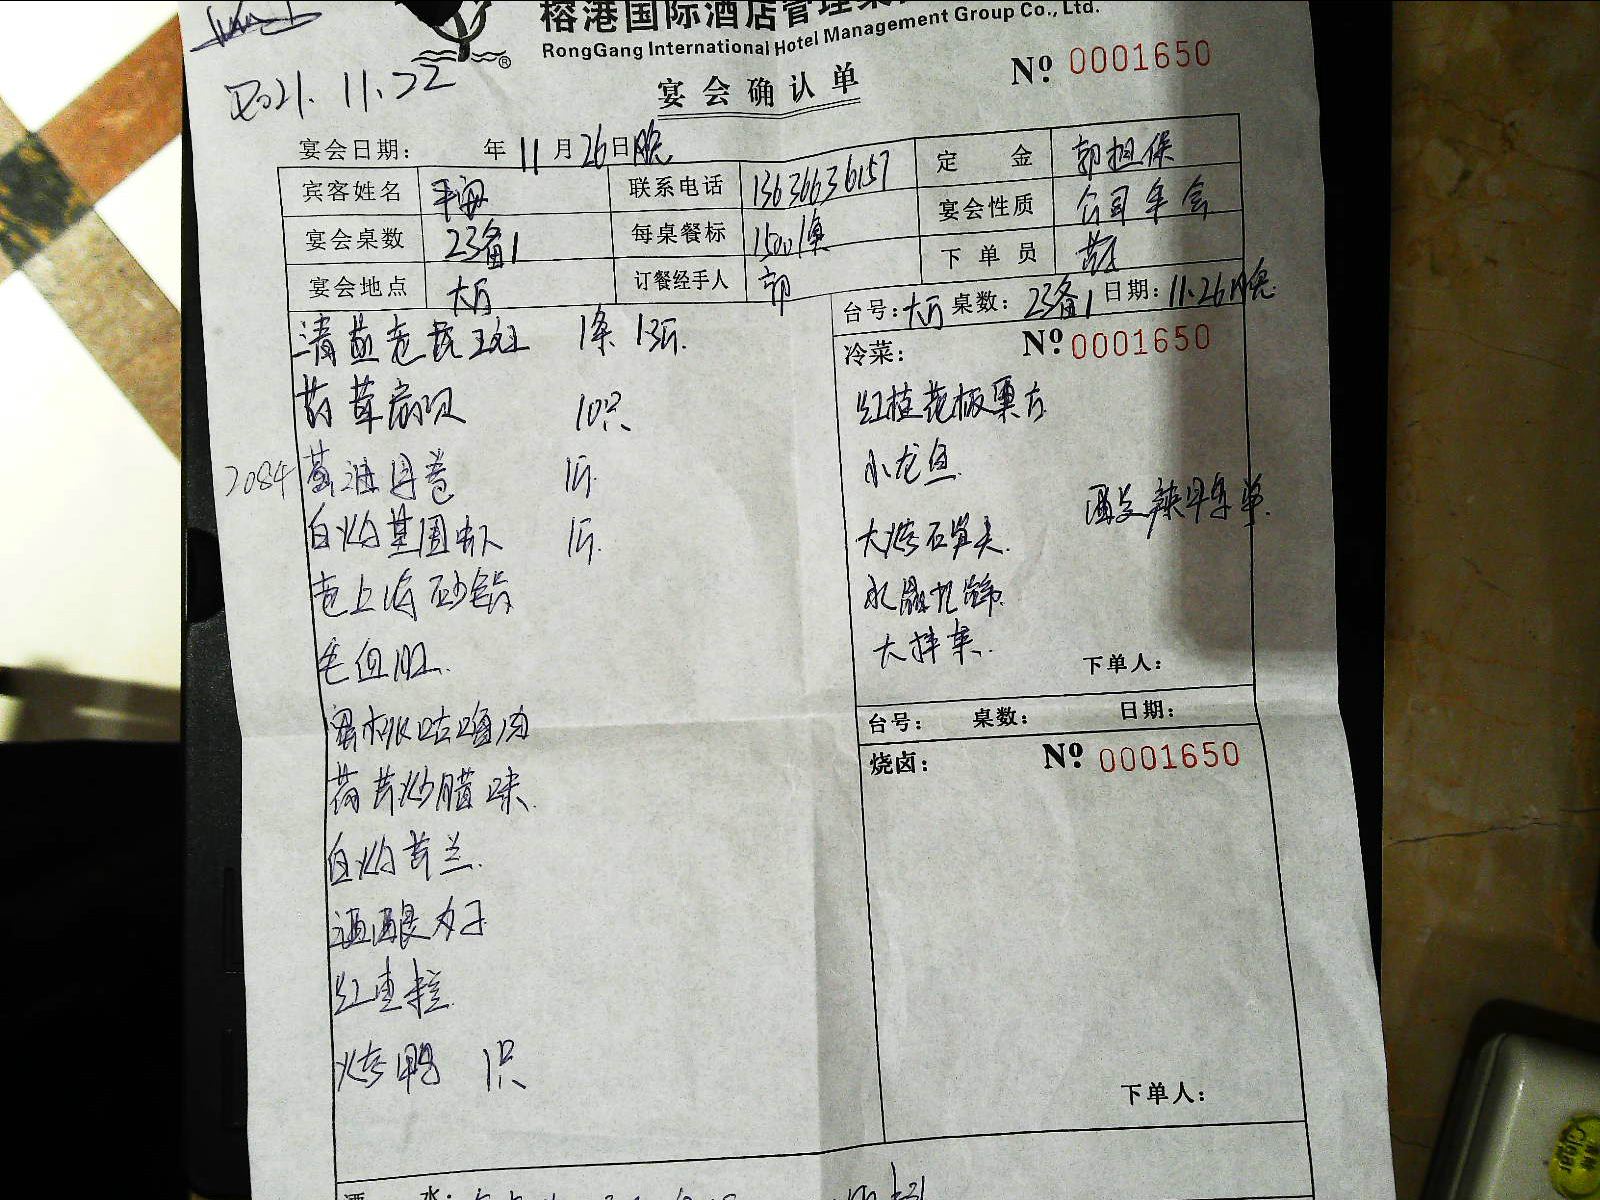 榕港国际酒店管理
RongGang International Hotel Management Group Co., Ltd.
2021.11.22
宴会确认单
Nº 0001650
宴会日期: 年 11 月 26 日 晚
宾客姓名 联系电话 13636636157 定金 郭担保
宴会桌数 23备1 每桌餐标 1500/桌 宴会性质 公司年会
宴会地点 大厅 订餐经手人 郭 下单员
台号: 大厅 桌数: 23备1 日期: 11.26晚
清蒸老虎斑 1条 1.3斤
蒜茸扇贝 10只
2084
1斤
白灼基围虾 1斤
老上海砂锅
毛血旺
蜜桃咕噜肉
荷芹炒腊味
白灼芥兰
酒酿丸子
红枣糕
烤鸭 1只
冷菜:
Nº 0001650
小龙鱼
大烤石笋头
大拌菜
下单人:
台号: 桌数: 日期:
烧卤:
Nº 0001650
下单人:
酒水: